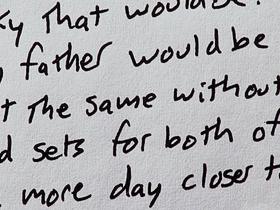 That would
father would be
The same without
sets for both of
more day closer